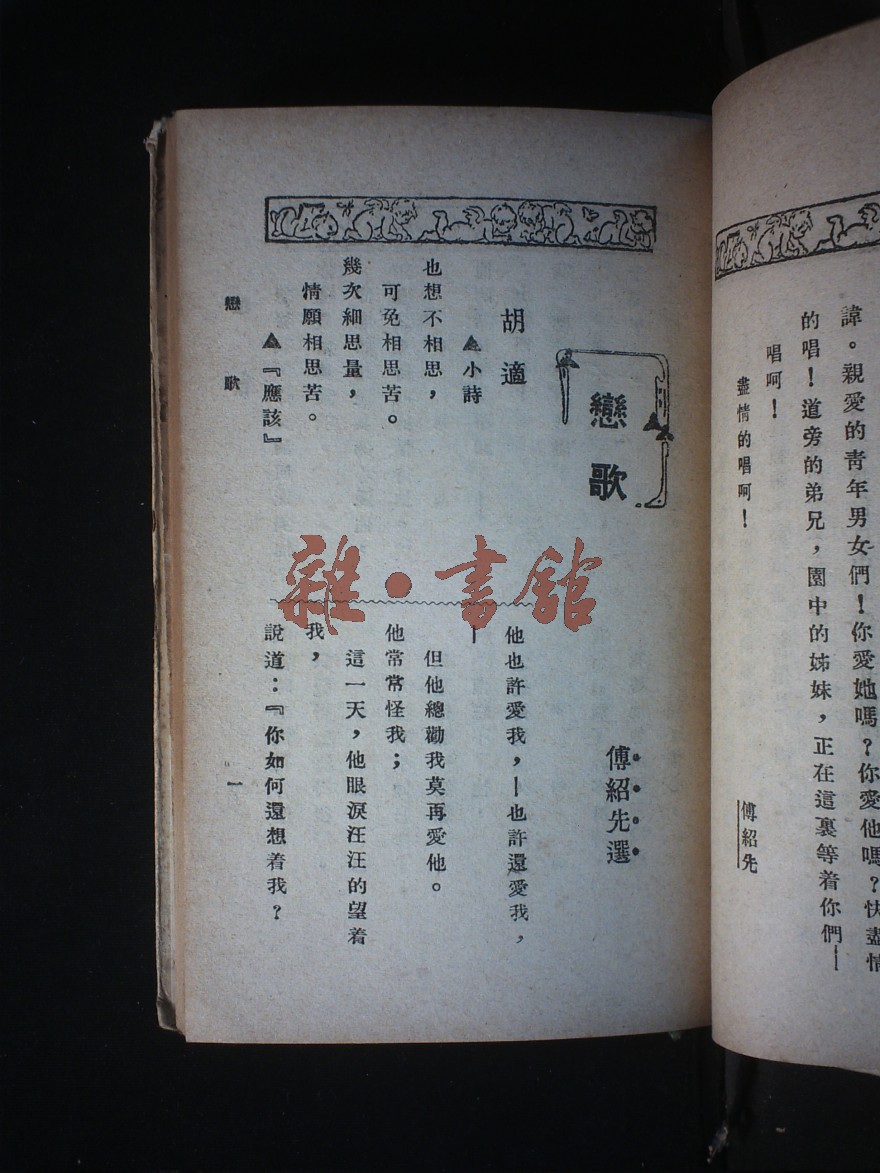 諱。親愛的靑年男女們！你愛她嗎？你愛他嗎？快盡情
的唱！道旁的弟兄，園中的姊妹，正在這裏等着你們—
唱呵！
盡情的唱呵！
傅紹先
戀歌
傅紹先選
胡適
▲小詩
也想不相思，
可免相思苦。
幾次細思量，
情願相思苦。
▲『應該』
他也許愛我，—也許還愛我，
—
但他總勸我莫再愛他。
他常常怪我；
這一天，他眼淚汪汪的望着
我，
說道：『你如何還想着我？
戀歌
一
雜·書館